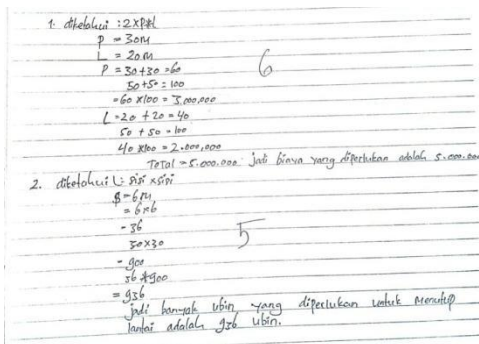 1. diketahui : 2xP*l
P = 30m
L = 20m
P = 30+30 = 60
50+50 = 100
= 60 x100 = 3.000.000
6
L = 20 + 20 = 40
50 + 50 = 100
40 x100 = 2.000.000
Total = 5.000.000 jadi biaya yang diperlukan adalah 5.000.000
2. diketahui L = sisi x sisi
S = 6m
= 6x6
- 36
30x30
5
- 900
36 + 900
= 936
jadi banyak ubin yang diperlukan untuk menutup
lantai adalah 936 ubin.